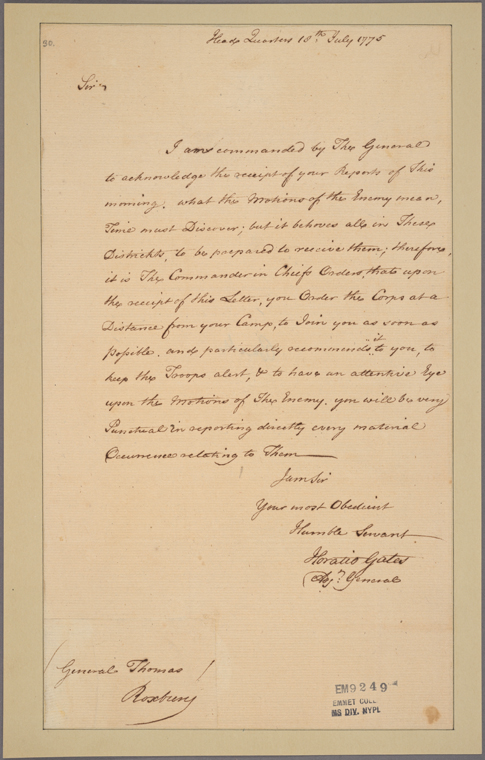 90.
Head Quarters 18th July 1775
Sir
I am commanded by The General
to acknowledge the receipt of your Reports of This
morning. what the Motions of the Enemy mean,
Time must Discover; but it behoves all in These
Districkts, to be prepared to receive them; therefore,
it is The Commander in Chiefs Orders, that upon
the receipt of this Letter, you Order the Corps at a
Distance from your Camp, to Join you as soon as
Possible. and particularly recommends it to you, to
keep the Troops alert, & to have an attentive Eye
upon the Motions of The Enemy. you will be very
Punctual in reporting directly every material
Occurrence relating to Them
I am Sir
Your most Obedient
Humble Servant
Horatio Gates
Adjt. General
General Thomas
Roxbury
EM9249
EMMET COLL
MS DIV. NYPL